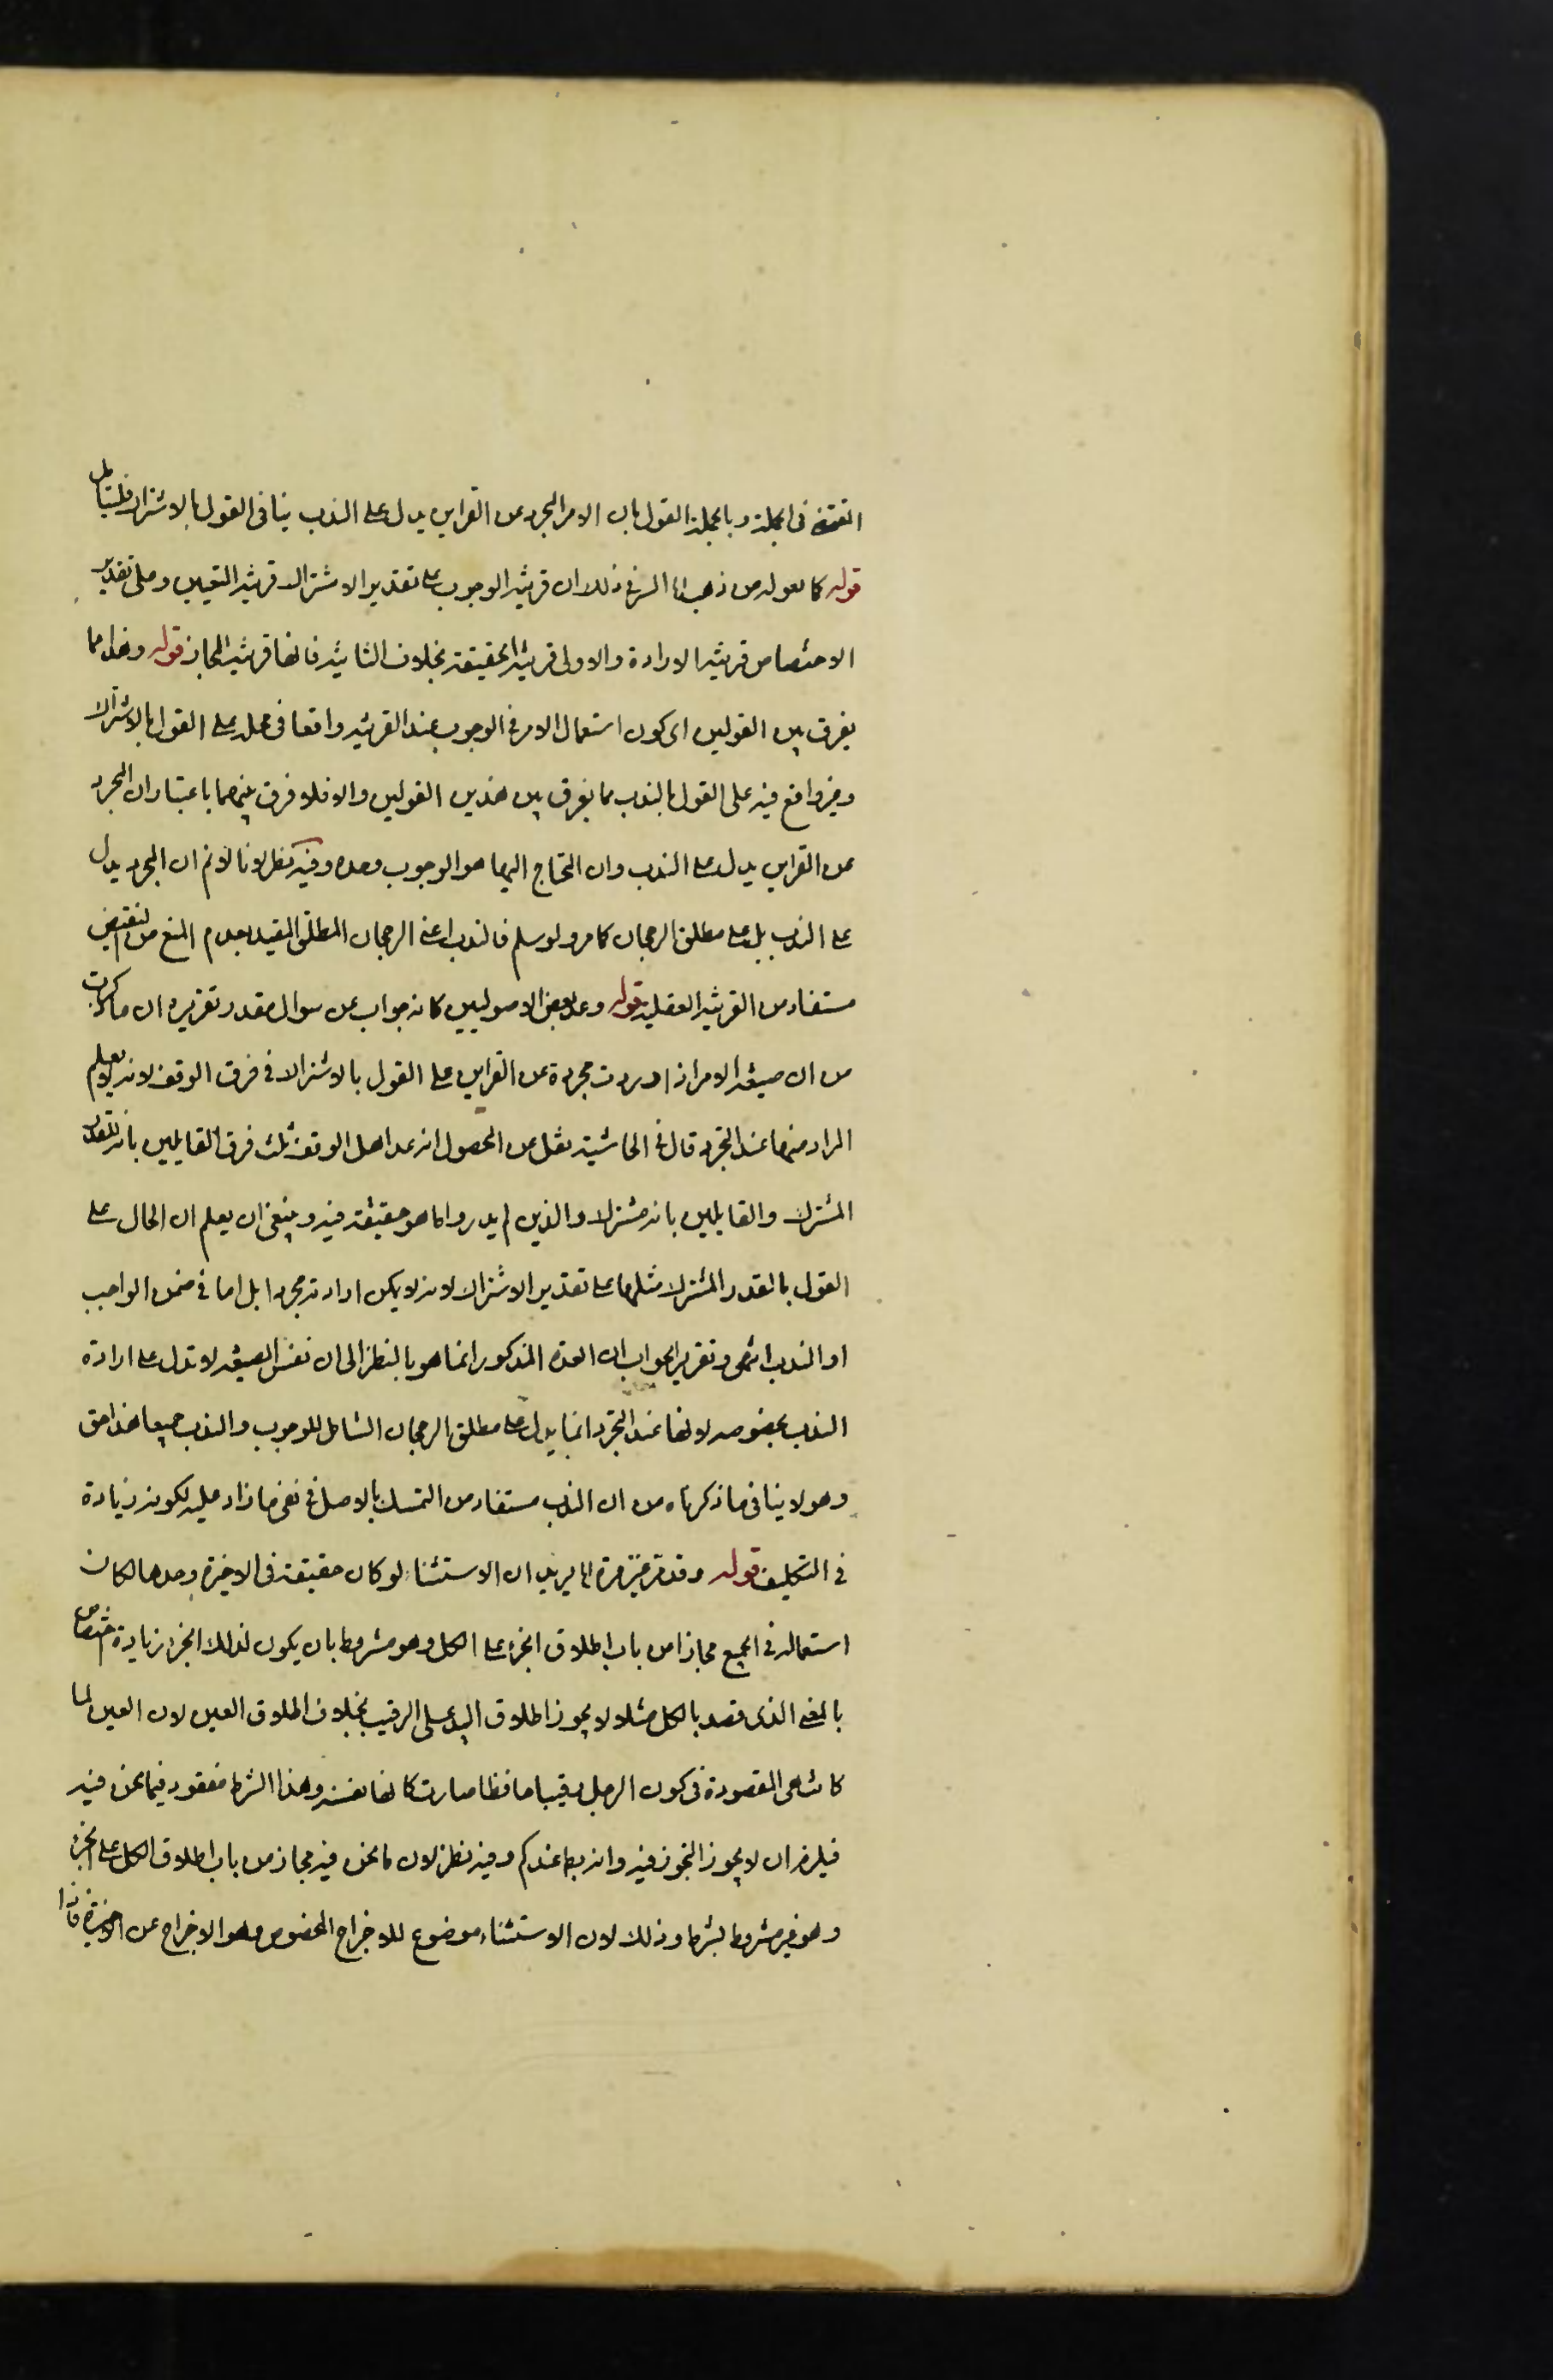 في الجملة وبالجملة القول بان الامر المجرد عن القراين يدل على الندب ينافى القول بالاشتراك فليتامل
قوله كما يقوله من ذهب الخ السر في ذلك ان قرينة الوجوب على تقدير الاشتراك قرينة التعيين وعلى تقدير
الاختصاص قرينة الارادة والاولى قرينة الحقيقة بخلاف الثانية فانها قرينة المجاز قوله وهذا مما
يفرق بين القولين اى كون استعمال الامر في الوجوب عند القرينه واقعا في محله على القول بالاشتراك
وغير واقع فيه على القول بالندب مما يفرق بين هذين القولين والا فلا فرق بينهما باعتبار ان المجرد
عن القراين يدل على الندب وان المحتاج اليها هو الوجوب وحده وفيه نظر لانا لا نم ان المجرد يدل
على الندب بل على مطلق الرجحان كما مر ولو سلم فالندب اعنى الرجحان المطلق المقيد بعدم المنع من النقيض
مستفاد من القرينة العقلية قوله وعد بعض الاصوليين كانه جواب عن سوال مقدر تقريره ان ما ذكرت
من ان صيغة الامر اذا وردت مجردة عن القراين على القول بالاشتراك في فرق الوقف لانه لا يعلم
المراد منها عند التجرد قال في الحاشية نقل عن المحصول انه عد اهل الوقف ثلث فرق القايلين بانه للقدر
المشترك والقايلين بانه مشترك والذين لم يدروا ما هو حقيقة فيه وينبغي ان يعلم ان الحال على
القول بالقدر المشترك مثلها على تقدير الاشتراك لانه لا يمكن ارادته مجردا بل اما في ضمن الواجب
او الندب انتهى وتقرير الجواب ان العد المذكور انما هو بالنظر الى ان نفس الصيغه لا تدل على ارادة
الندب بخصوصه لانها عند التجرد انما يدل على مطلق الرجحان الشامل للوجوب والندب جميعا هذا حق
وهو لا ينافى ما ذكرناه من ان الندب مستفاد من التمسك بالاصل في نفى ما زاد عليه لكونه زيادة
في التكليف قوله وقد مر غير مرة الخ يريد ان الاستثناء لو كان حقيقة في الاخيرة وحدها لكان
استعماله في الجميع مجازا من باب اطلاق الجزء على الكل وهو مشروط بان يكون لذلك الجزء زيادة اختصاص
بالمعنى الذى قصد بالكل مثلا لا يجوز اطلاق اليد على الرقيب بخلاف اطلاق العين لان العين لما
كانت هى المقصودة في كون الرجل رقيبا حافظا صارت كانها نفسه وهذا الشرط مفقود فيما نحن فيه
فيلزم ان لا يجوز التجوز فيه وانه بط عندكم وفيه نظر لان ما نحن فيه مجاز من باب اطلاق الكل على الجزء
وهو غير مشروط بشرط وذلك لان الاستثناء موضوع للاخراج المخصوص وهو الاخراج عن الاخيرة فاذا